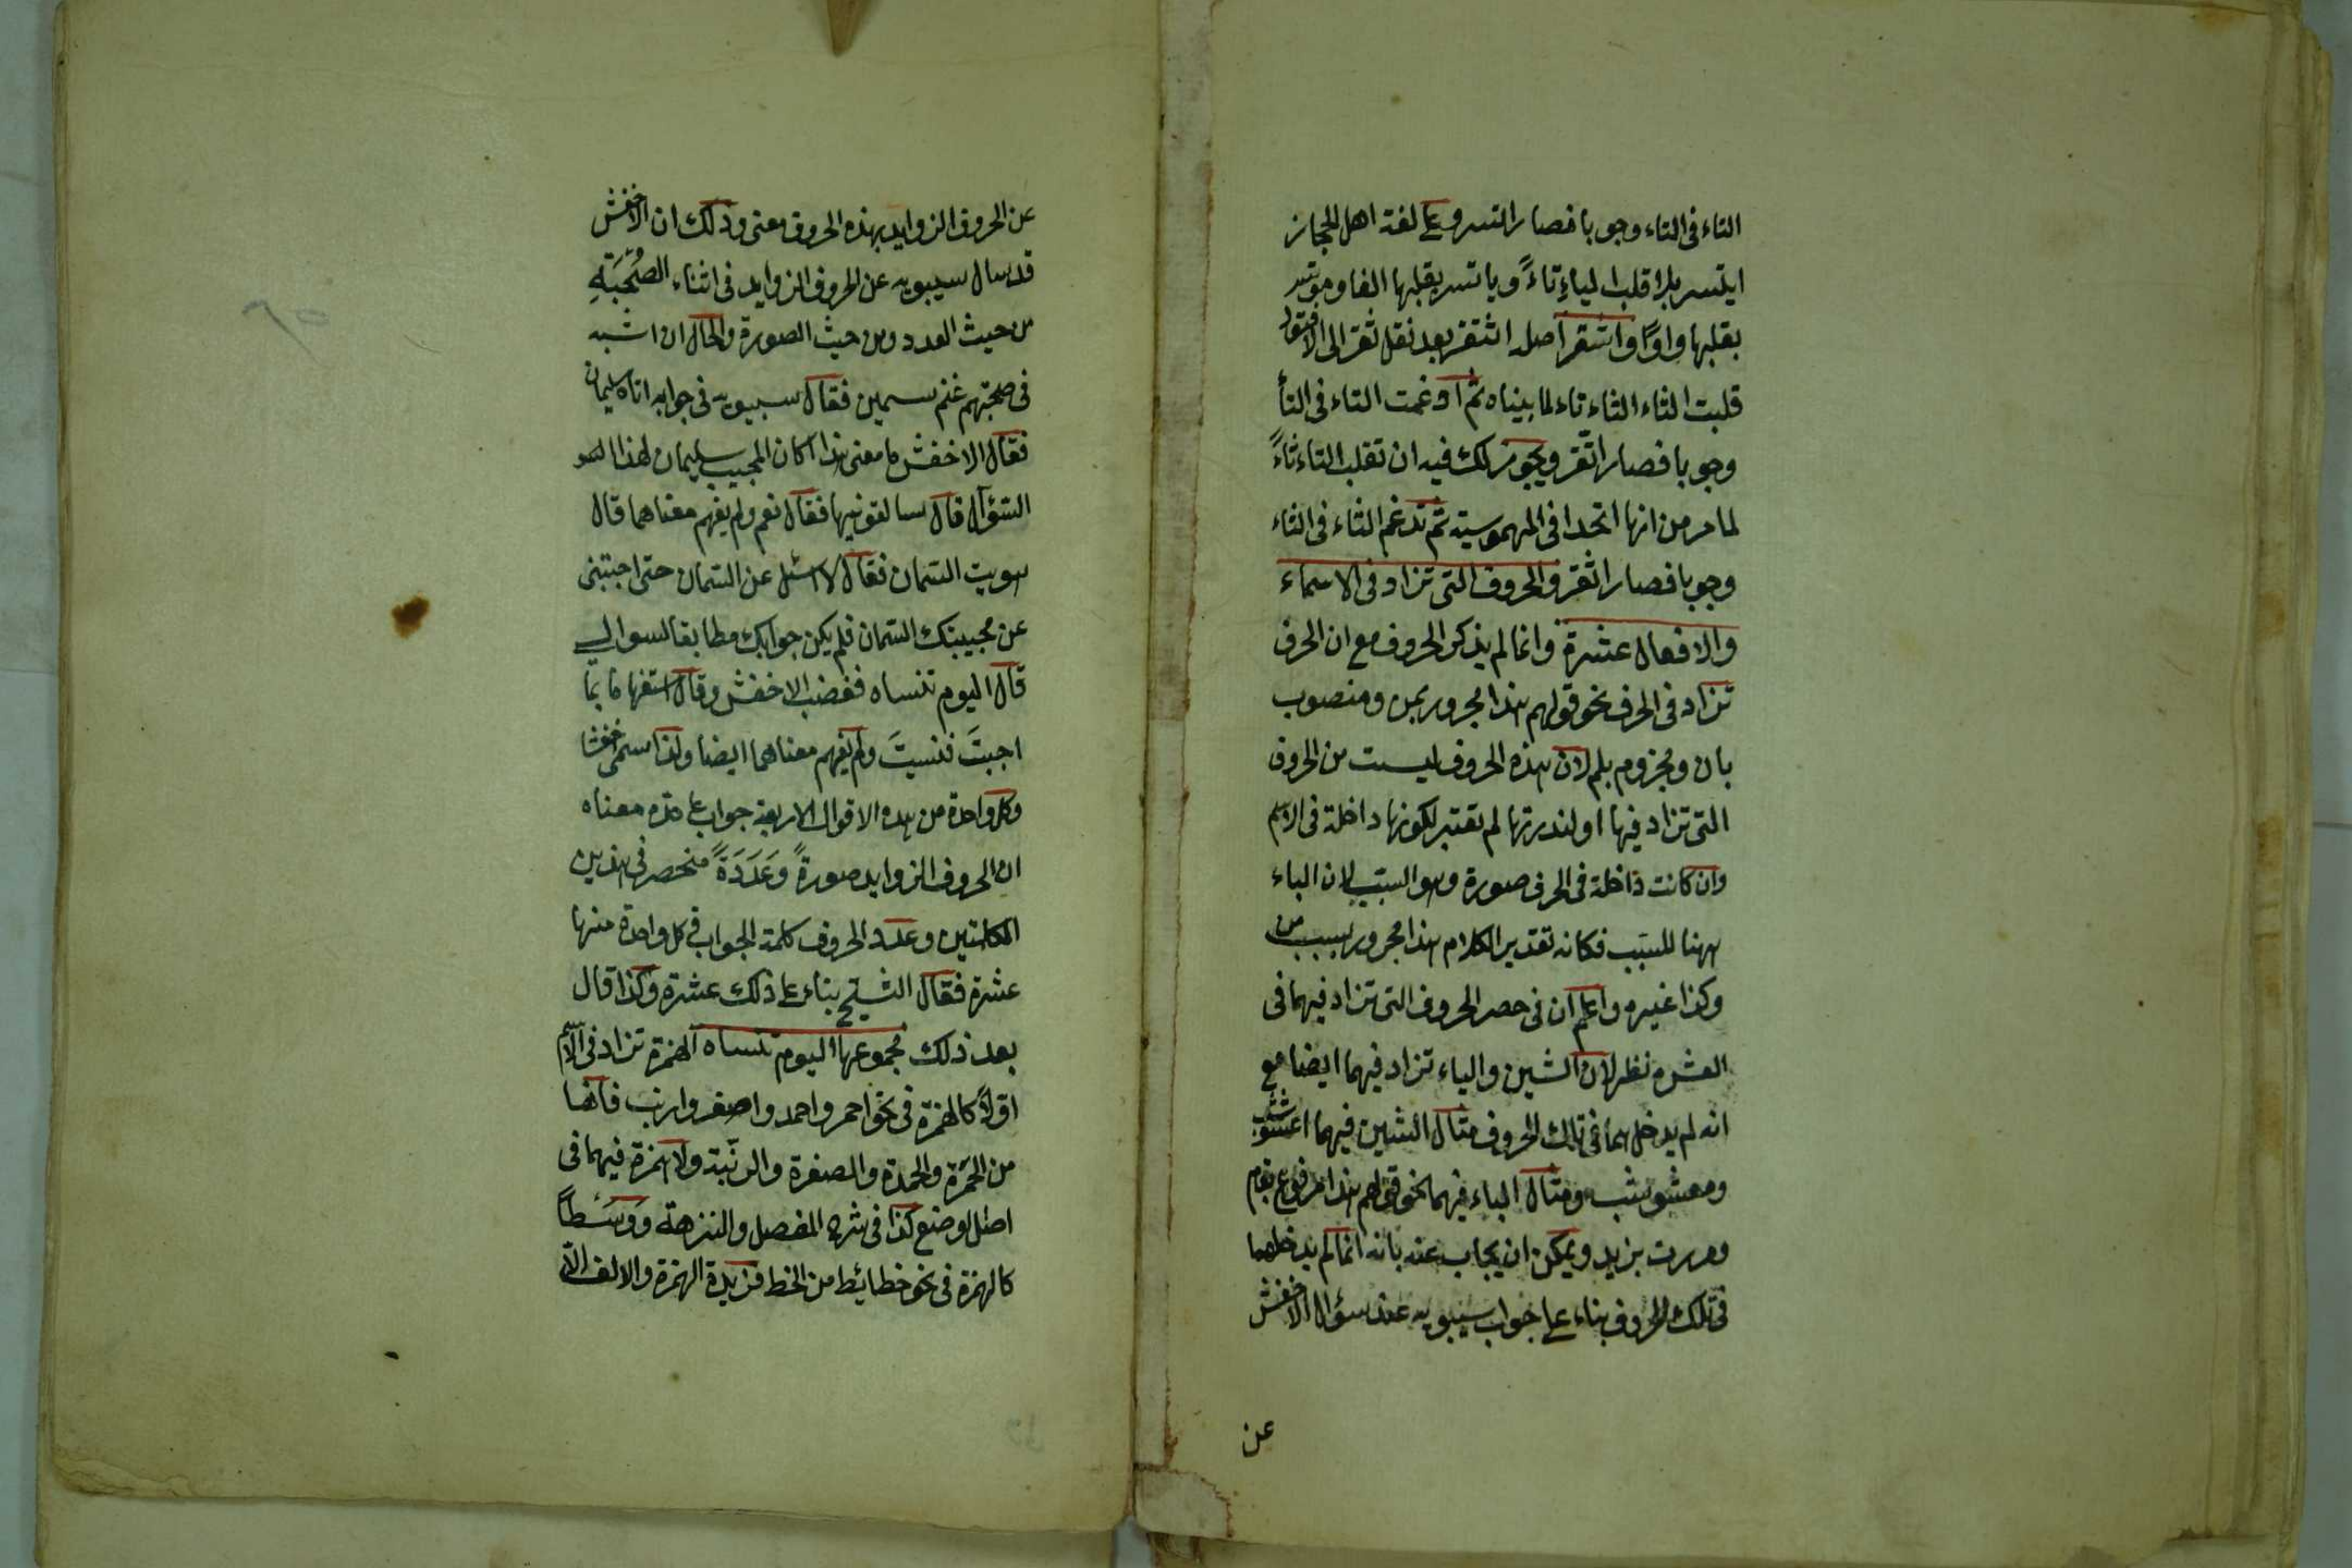 التاء فى التاء وجوبا فصار اتسر وعلى لغة اهل الحجاز
ايتسر بلا قلب الياءِ تاءً وياتسر بقلبها الفا وموتسر
بقلبها واوًا واتقر اصله اثتقر بعد نقل ثقر الى الافتعال
قلبت الثاء الثاء تاء لما بيناه ثم ادغمت التاء فى التأ
وجوبا فصار اتّقر ويجوز لك فيه ان تقلب التاء ثاءً
لما مر من انها اتحدا فى المهموسية ثم تدغم الثاء فى الثاء
وجوبا فصار اثقر والحروف التى تزاد فى الاسماء
والافعال عشرة وانما لم يذكر الحروف مع ان الحرف
تزاد فى الحرف نحو قولهم هذا مجرور بمن ومنصوب
بان ومجزوم بلم لان هذه الحروف ليست من الحروف
التى تزاد فيها او لندرتها لم تعتبر لكونها داخلة فى الاسم
وان كانت داخلة فى الحرف صورة وهو السبب لان الباء
ههنا للسبب فكانه تقدير الكلام هذا مجرور بسبب من
وكذا غيره واعلم ان فى حصر الحروف التى تزاد فيهما فى
العشره نظر لان الشين والباء تزاد فيهما ايضا مع
انه لم يدخلهما فى تلك الحروف مثال الشين فيهما اعشوشب
ومعشوشب ومثال الباء فيهما نحو قولهم هذا مرفوع بقام
ومررت بزيد ويمكن ان يجاب عنه بانه انما لم يدخلهما
فى تلك الحروف بناء على جواب سيبويه عند سؤال الاخفش
عن
عن الحروف الزوايد بهذه الحروف معنى وذلك ان الاخفش
قد سال سيبويه عن الحروف الزوايد فى اثناء الصُحْبَتِهِ
من حيث العدد ومن حيث الصورة والحال ان اشبه
فى صحبتهم غنم سمين فقال سيبويه فى جوابه اتاه سليمان
فقال الاخفش ما معنى هذا اكان المجيب سليمان لهذا
السؤال قال سالتمونيها فقال نعم ولم يفهم معناهما قال
هويت السمان فقال لا اسئل عن السمان حتى اجبتنى
عن مجيبتك السمان فلم يكن جوابك مطابقا لسوالى
قال اليوم تنساه فغضب الاخفش وقال استفهاما بمَا
اجبتَ فنسيتَ ولم يفهم معناهما ايضا ولذا سمى اخفشا
وكل واحدة من هذه الاقوال الاربعة جواب على حده معناه
ان الحروف الزوايد صورةً وعَدَدَةً منحصر فى هذين
الكلمتين وعدد الحروف كلمة الجواب فى كل واحدة منها
عشرة فقال الشيخ بناء على ذلك عشرة وكذا قال
بعد ذلك مجموعها اليوم تنساه الهمزة تزاد فى الاسم
اوّلاً كالهمزة فى نحو احمر واحمد واصفر وارنب فانها
من الحمرَة والحمدة والصفرة والرنبة ولا همزة فيهما فى
اصل الوضع كذا فى شرح المفصل والنزهة ووَسَطاً
كالهمزة فى نحو خطائِط من الخط فزيدة الهمزة والالف